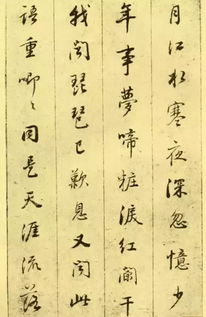 月江水寒夜深忽憶少
年事夢啼粧淚紅闌干
我聞琵琶已歎息又聞此
語重唧〻同是天涯流落